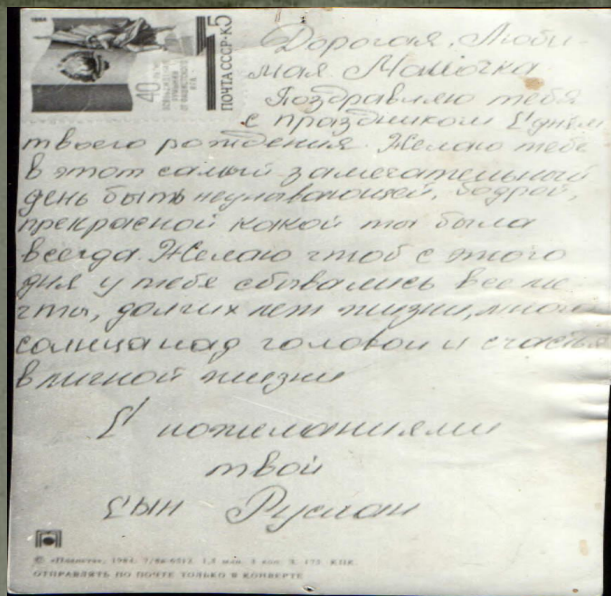 1984
40 лет
ПОЧТА СССР·К5
Дорогая, Люби-
мая Мамочка
Поздравляю тебя
с праздником С днём
твоего рождения. Желаю тебе
в этот самый замечательный
день быть неунывающей, бодрой,
прекрасной какой ты была
всегда. Желаю чтоб с этого
дня у тебя сбывались все ме
чты, долгих лет жизни, много
солнца над головой и счастья
в личной жизни
С пожеланиями
твой
Сын Руслан
© «Планета», 1984.
ОТПРАВЛЯТЬ ПО ПОЧТЕ ТОЛЬКО В КОНВЕРТЕ